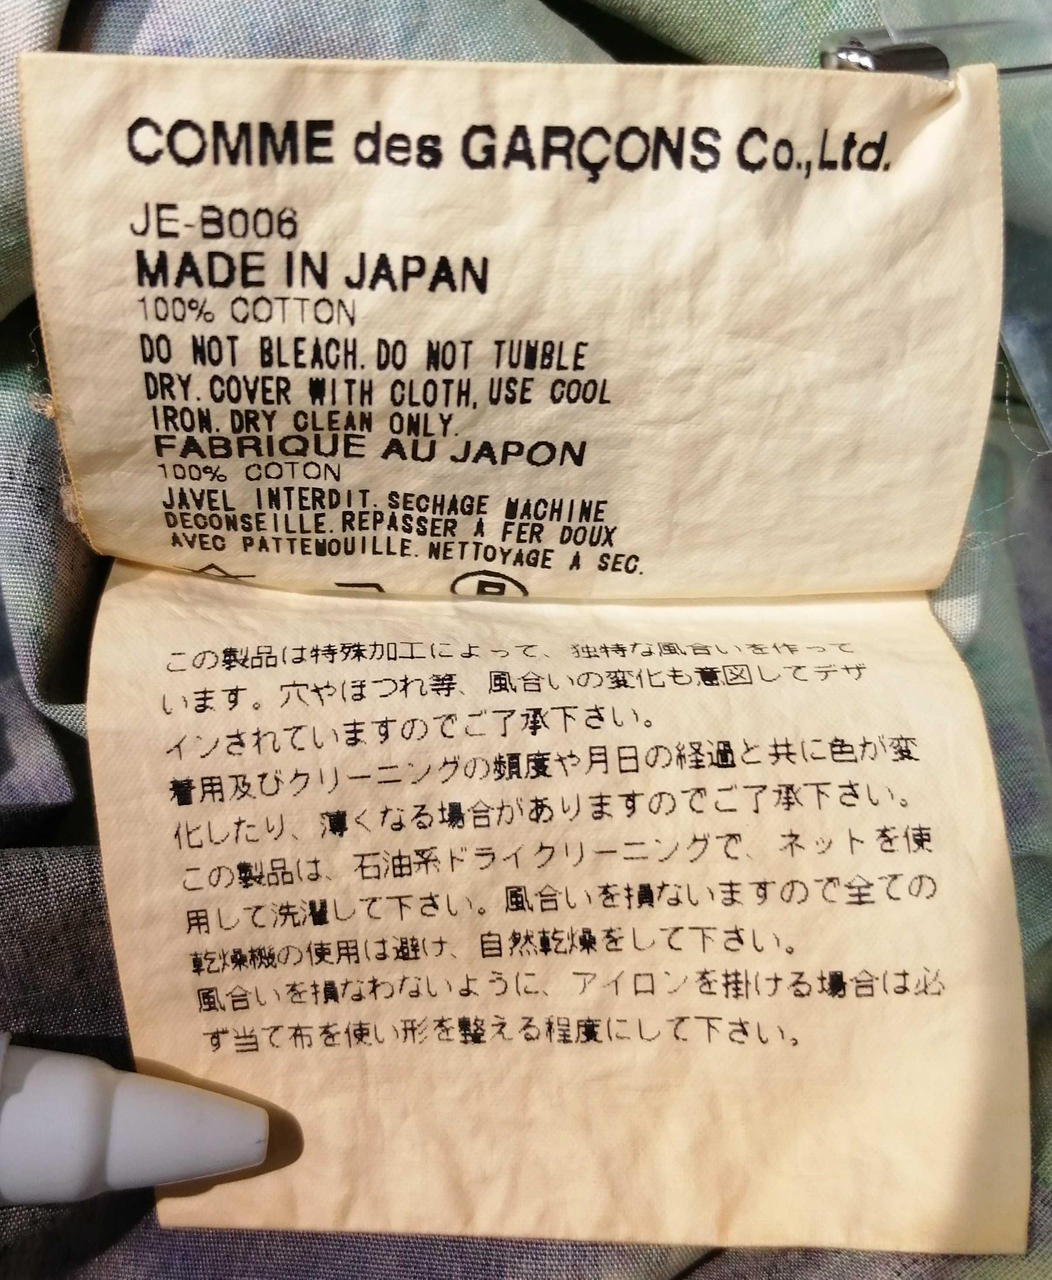 COMME des GARÇONS Co.,Ltd.
JE-B006
MADE IN JAPAN
100% COTTON
DO NOT BLEACH. DO NOT TUMBLE
DRY. COVER WITH CLOTH, USE COOL
IRON. DRY CLEAN ONLY.
FABRIQUE AU JAPON
100% COTON
JAVEL INTERDIT. SECHAGE MACHINE
DECONSEILLE. REPASSER A FER DOUX
AVEC PATTEMOUILLE. NETTOYAGE A SEC.
P
この製品は特殊加工によって、独特な風合いを作って
います。穴やほつれ等、風合いの変化も意図してデザ
インされていますのでご了承下さい。
着用及びクリーニングの頻度や月日の経過と共に色が変
化したり、薄くなる場合がありますのでご了承下さい。
この製品は、石油系ドライクリーニングで、ネットを使
用して洗濯して下さい。風合いを損ないますので全ての
乾燥機の使用は避け、自然乾燥をして下さい。
風合いを損なわないように、アイロンを掛ける場合は必
ず当て布を使い形を整える程度にして下さい。